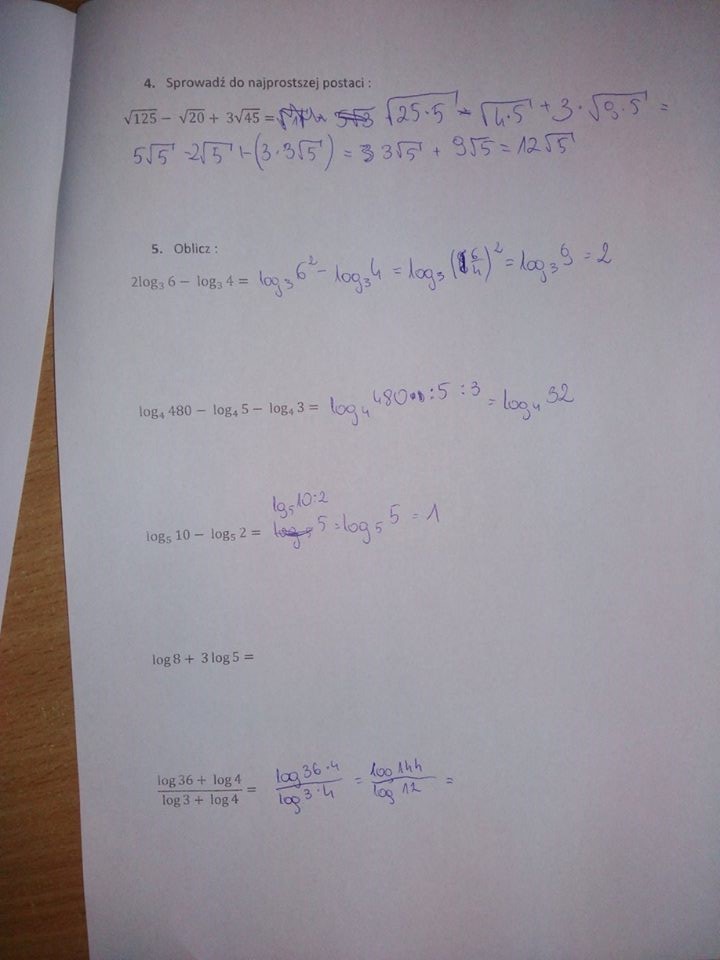 4. Sprowadź do najprostszej postaci :
√125 − √20 + 3√45 = √25·5 - √4·5 + 3·√9·5 =
5√5 -2√5 + (3·3√5) = 3√5 + 9√5 = 12√5
5. Oblicz :
2log₃ 6 − log₃ 4 = log₃6² - log₃4 = log₃(6/4)² = log₃9 = 2
log₄ 480 − log₄ 5 − log₄ 3 = log₄480:5:3 = log₄32
lg₅10:2
log₅ 10 − log₅ 2 = 5 = log₅5 = 1
log 8 + 3 log 5 =
(log 36 + log 4)/(log 3 + log 4) = (log36·4)/(log3·4) = (log144)/(log12) =